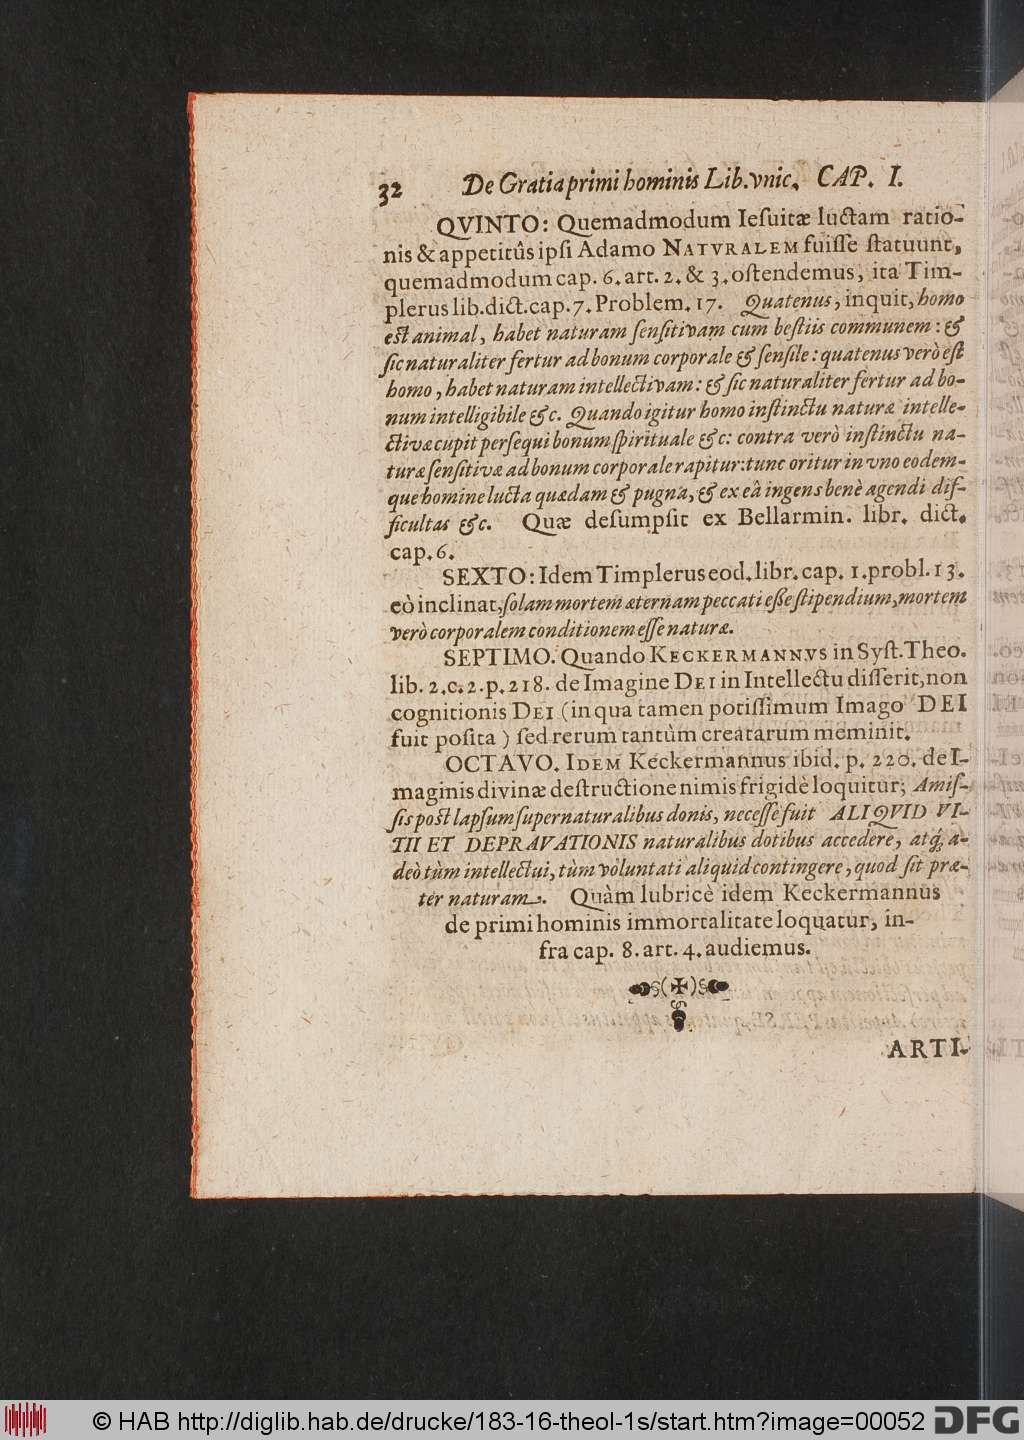 32 De Gratia primi hominis Lib. vnic. CAP. I.
QVINTO: Quemadmodum Iesuitæ luctam ratio-
nis & appetitûs ipsi Adamo NATVRALEM fuisse statuunt,
quemadmodum cap. 6. art. 2. & 3. ostendemus, ita Tim-
plerus lib. dict. cap. 7. Problem. 17. Quatenus, inquit, homo
est animal, habet naturam sensitivam cum bestiis communem: &
sic naturaliter fertur ad bonum corporale & sensile: quatenus verò est
homo, habet naturam intellectivam: & sic naturaliter fertur ad bo-
num intelligibile &c. Quando igitur homo instinctu naturæ intelle-
ctivæ cupit persequi bonum spirituale &c: contra verò instinctu na-
turæ sensitivæ ad bonum corporale rapitur: tunc oritur in vno eodem-
que homine lucta quædam & pugna, & ex eâ ingens benè agendi dif-
ficultas &c. Quæ desumpsit ex Bellarmin. libr. dict.
cap. 6.
SEXTO: Idem Timplerus eod. libr. cap. 1. probl. 13.
eò inclinat, solam mortem æternam peccati eße stipendium, mortem
verò corporalem conditionem esse naturæ.
SEPTIMO. Quando KECKERMANNVS in Syst. Theo.
lib. 2. c. 2. p. 218. de Imagine DEI in Intellectu disserit, non
cognitionis DEI (in qua tamen potissimum Imago DEI
fuit posita) sed rerum tantùm creatarum meminit.
OCTAVO. IDEM Keckermannus ibid. p. 220. de I-
maginis divinæ destructione nimis frigidè loquitur; Amis-
sis post lapsum supernaturalibus donis, necesse fuit ALIQVID VI-
TII ET DEPRAVATIONIS naturalibus dotibus accedere, atq; a-
deò tùm intellectui, tùm voluntati aliquid contingere, quod sit præ-
ter naturam. Quàm lubricè idem Keckermannus
de primi hominis immortalitate loquatur, in-
fra cap. 8. art. 4. audiemus.
ARTI-
© HAB http://diglib.hab.de/drucke/183-16-theol-1s/start.htm?image=00052 DFG